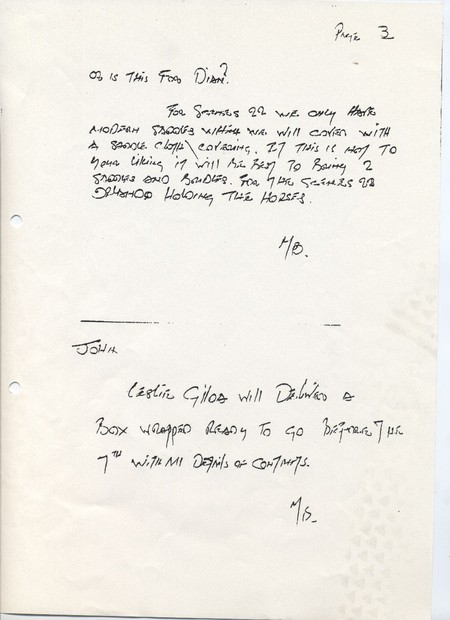 Page 3
is this for Dian?
For Scenes 22 we only have
modern saddles which we will cover with
a saddle cloth\covering. If this is not to
your liking it will be best to bring 2
saddles and bridles. For the scenes 22
holding the horses.
M/B.
John
Leslie Giloa will Delivered a
Box wrapped ready to go before the
7th with Details of contents.
M/B.